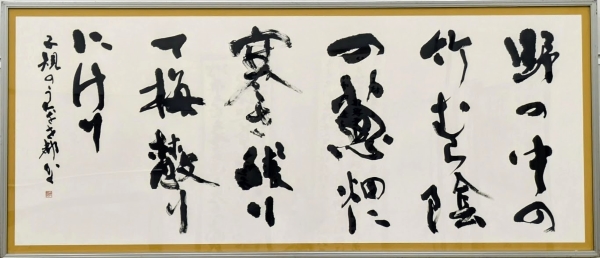 野の中の
竹むら陰
の葱畑に
寒さ残り
て梅散り
にけり
子規のうた